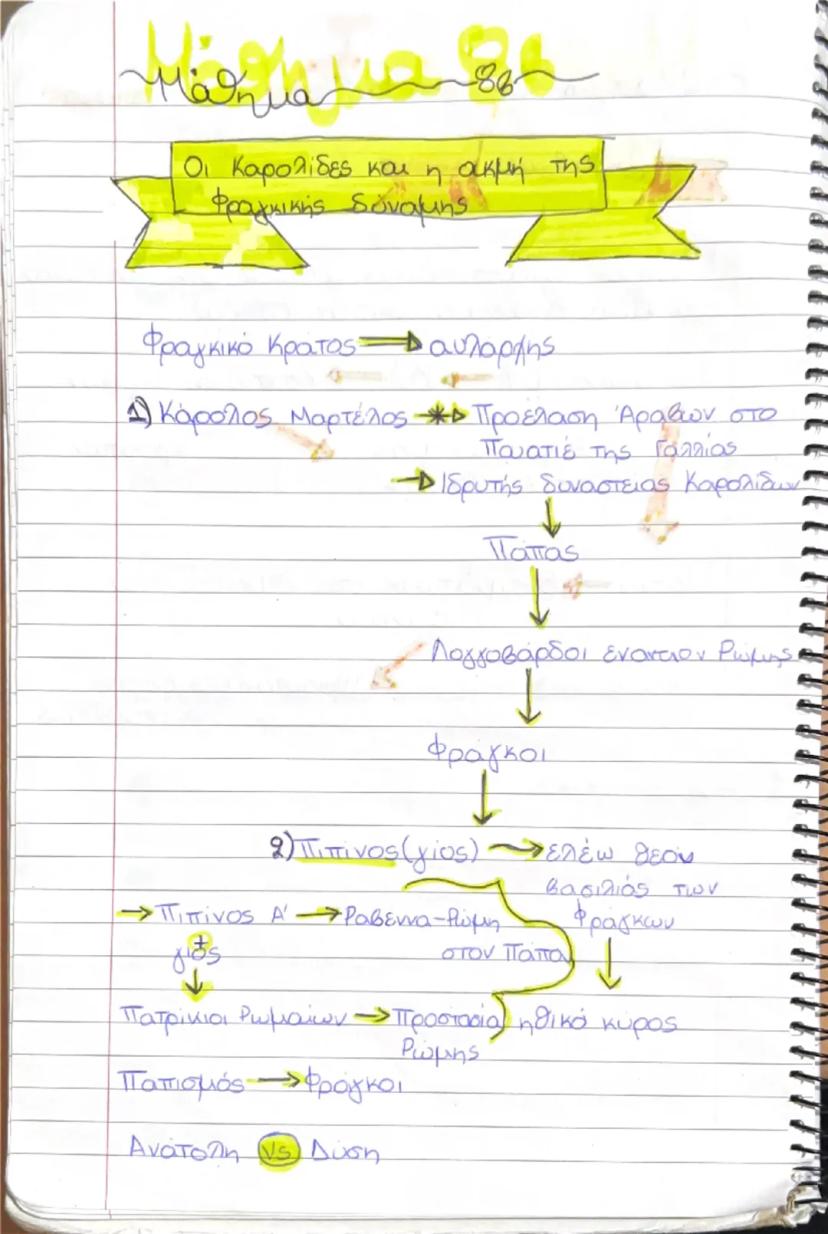 Μάθημα 8β
Μάθημα 8β
Οι Καρολίδες και η ακμή της
Φραγκικής δύναμης
Φραγκικό Κράτος ⇒ αυλάρχης
1) Κάρολος Μαρτέλος → Προέλαση Άραβων στο
Πουατιέ της Γαλλίας
→ Ιδρυτής δυναστείας Καρολιδών
↓
Πάπας
↓
Λογγοβάρδοι εναντίον Ρώμης
↓
Φράγκοι
↓
2) Πιπίνος (γιος) → ελέω θεού
βασιλιάς των
Φράγκων
→ Πιπίνος Α' → Ραβέννα-Ρώμη
στον Πάπα
γιος
↓
Πατρίκιοι Ρωμαίων → Προστασία
Ρώμης
↓
ηθικό κύρος
Παπισμός → Φράγκοι
Ανάτολη vs Δύση